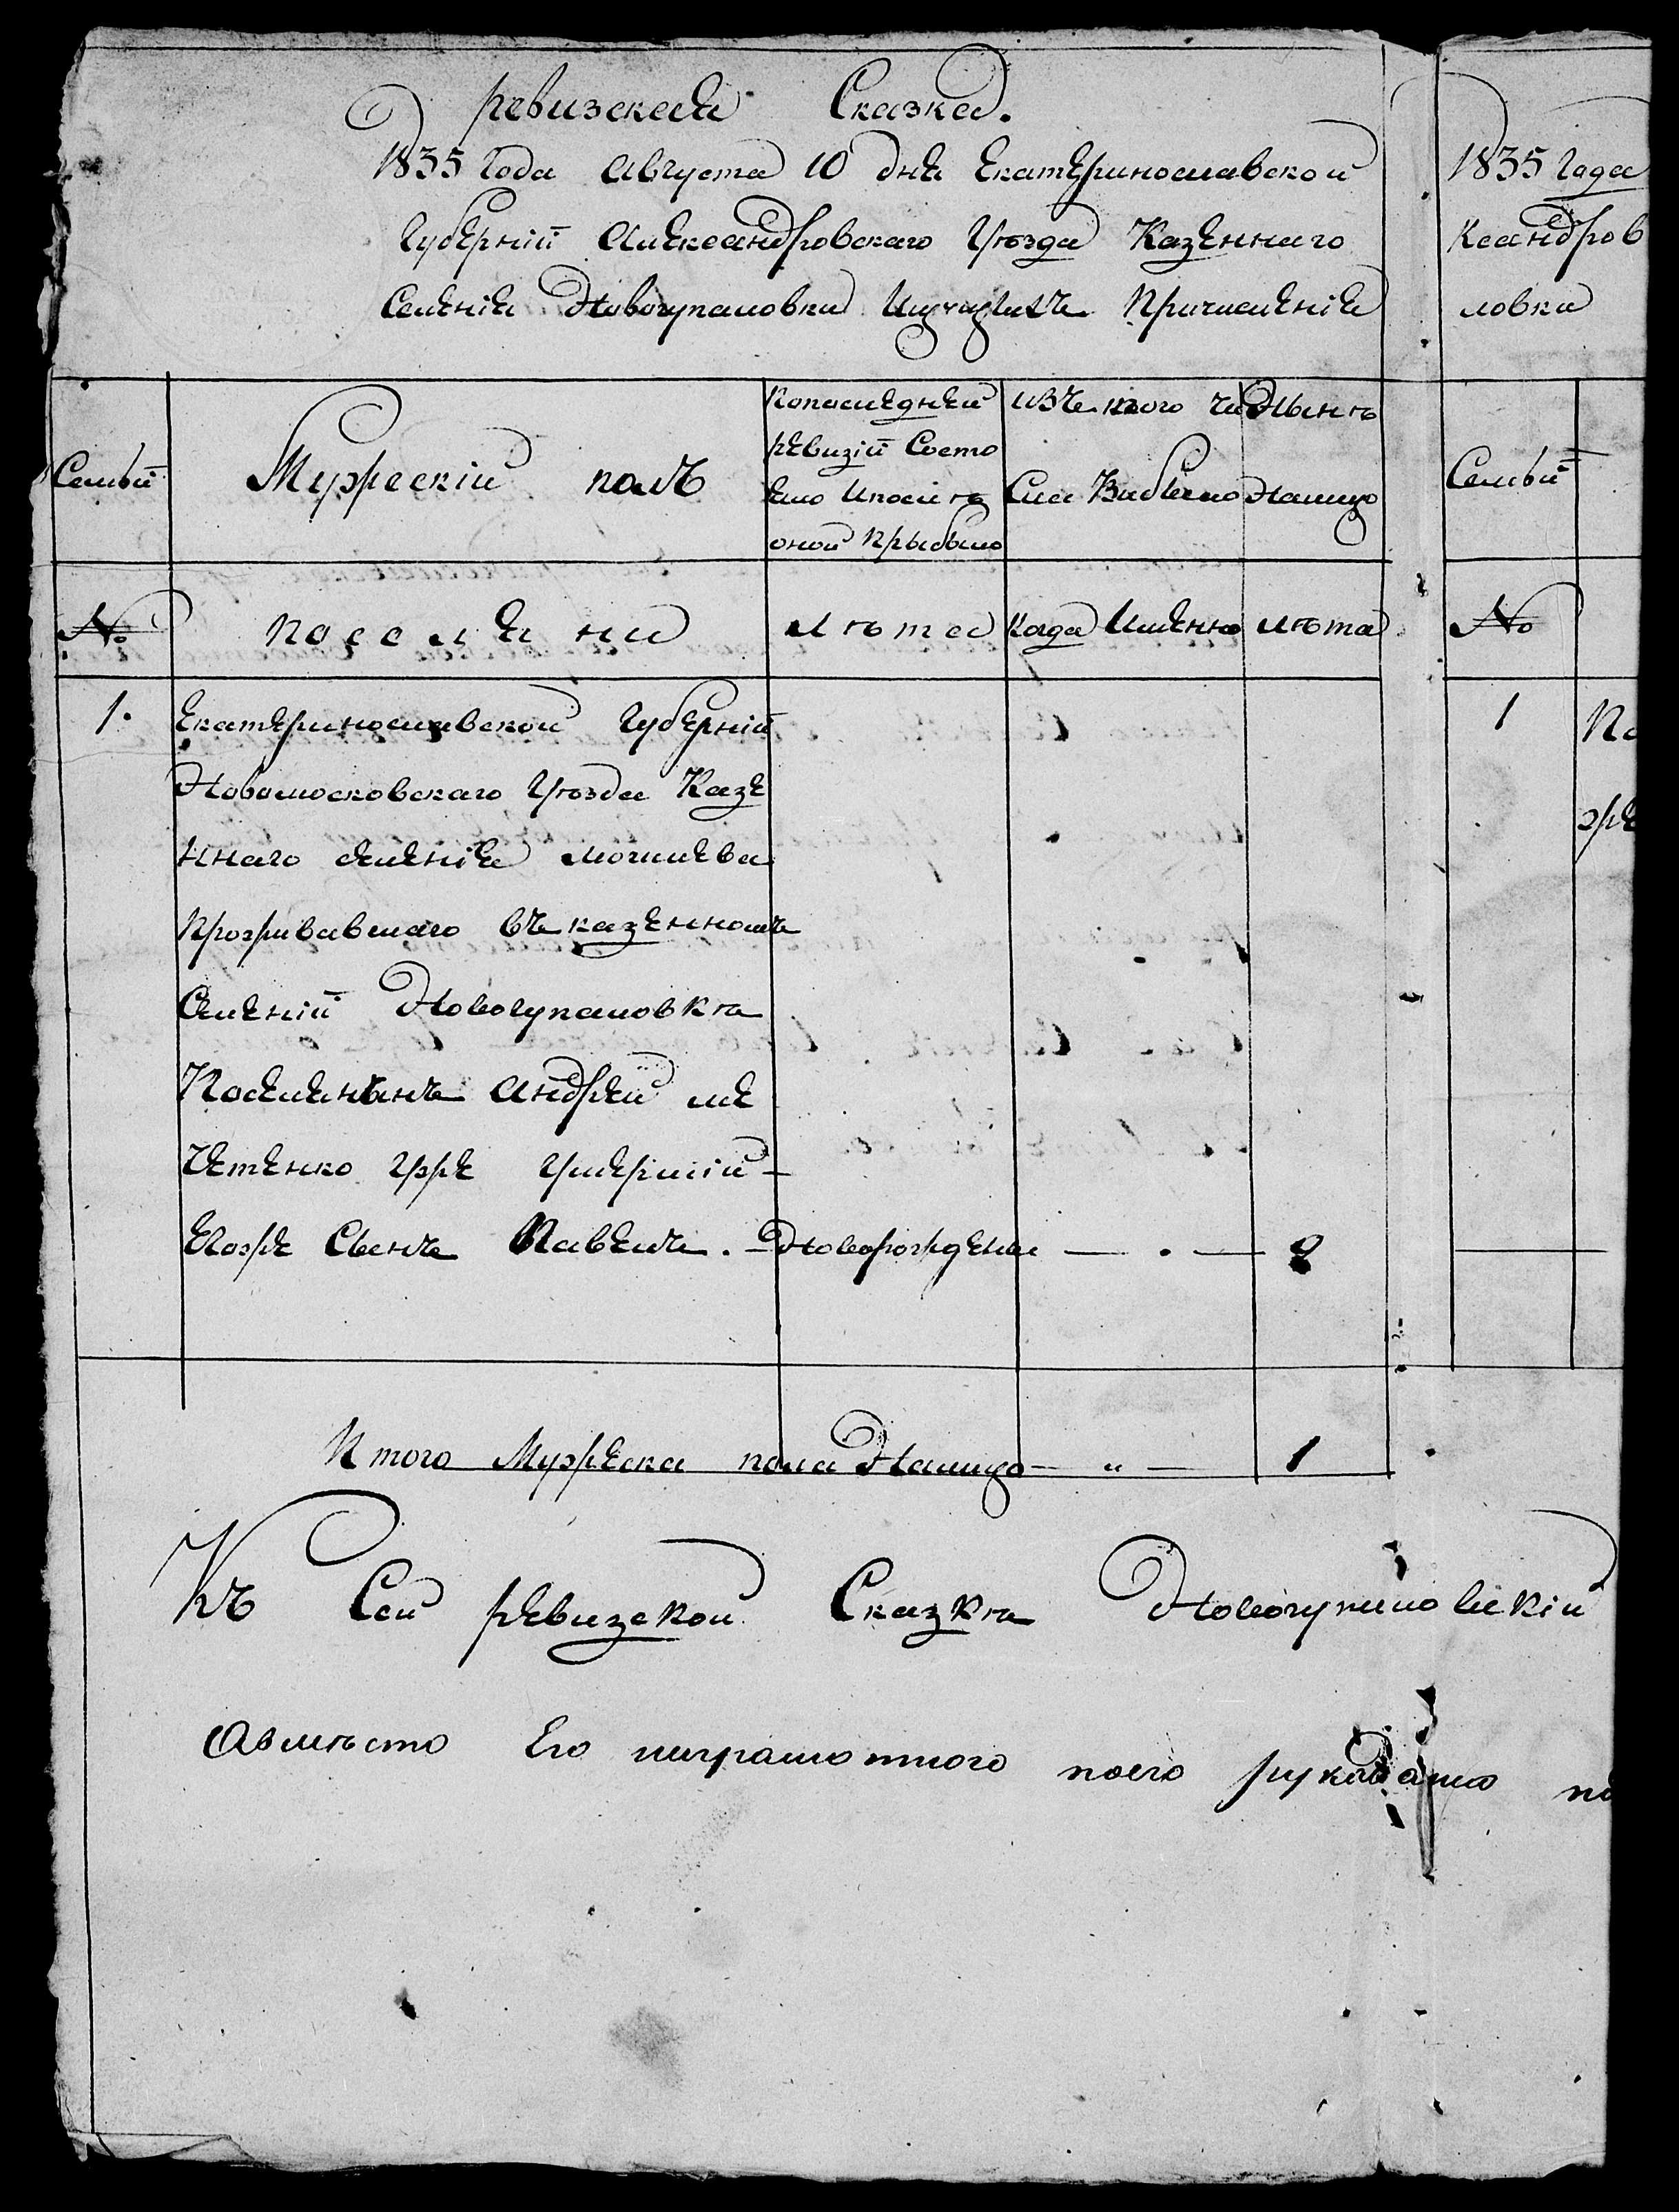 ревизская Сказка.
1835 Года Августа 10 дня Екатеринославской
Губерніи Александровскаго Уезда Казеннаго
Селенія Новогупаловки Ищущихъ Причисленія
Семьи
Мужескій полъ
Попоследней ревизіи Состо
яло Ипосле
оной Прыбыло
изъ того чи
сла Выбыло
Ныне
Налицо
№
поселяни
лета
Когда Именно
лета
1.
Екатеринославской Губерніи
Новомосковскаго Уезда Казе
ннаго селенія могилева
Проживавшаго въ казенномъ
Селеніи Новогупаловке
Поселянинъ Андрей ме
четенко уже умершій
Егоже Сынъ Павелъ. Новорожденн — . —
Итого Мужеска пола Налицо — „ — 1
Къ Сей ревизской Сказке Новогупаловскій
Авместо Его неграмотного поего рукодано по
1835 Года
ксандров
ловки
Семьи
№
1
По